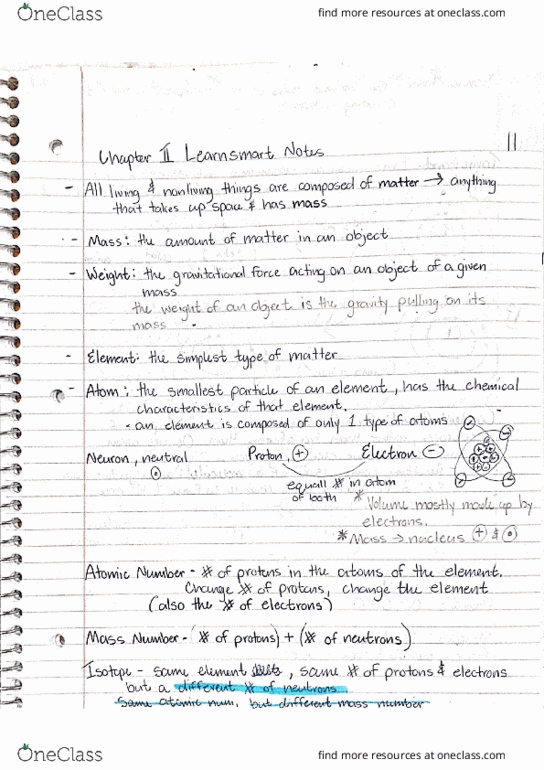 OneClass
find more resources at oneclass.com
11
Chapter II Learnsmart Notes
- All living & nonliving things are composed of matter → anything
that takes up space & has mass
- Mass: the amount of matter in an object
- Weight: the gravitational force acting on an object of a given
mass
the weight of an object is the gravity pulling on its
mass.
- Element: the simplest type of matter
- Atom: the smallest particle of an element, has the chemical
characteristics of that element.
- an element is composed of only 1 type of atoms
Neuron, neutral
Proton, +
Electron -
equall # in atom
of both
* Volume mostly made up by
electrons.
* Mass → nucleus + &
Atomic Number - # of protons in the atoms of the element.
Change # of protons, change the element
(also the # of electrons)
Mass Number - (# of protons) + (# of neutrons)
Isotope - same element, same # of protons & electrons
but a different # of neutrons
same atomic num, but different mass number
OneClass
find more resources at oneclass.com